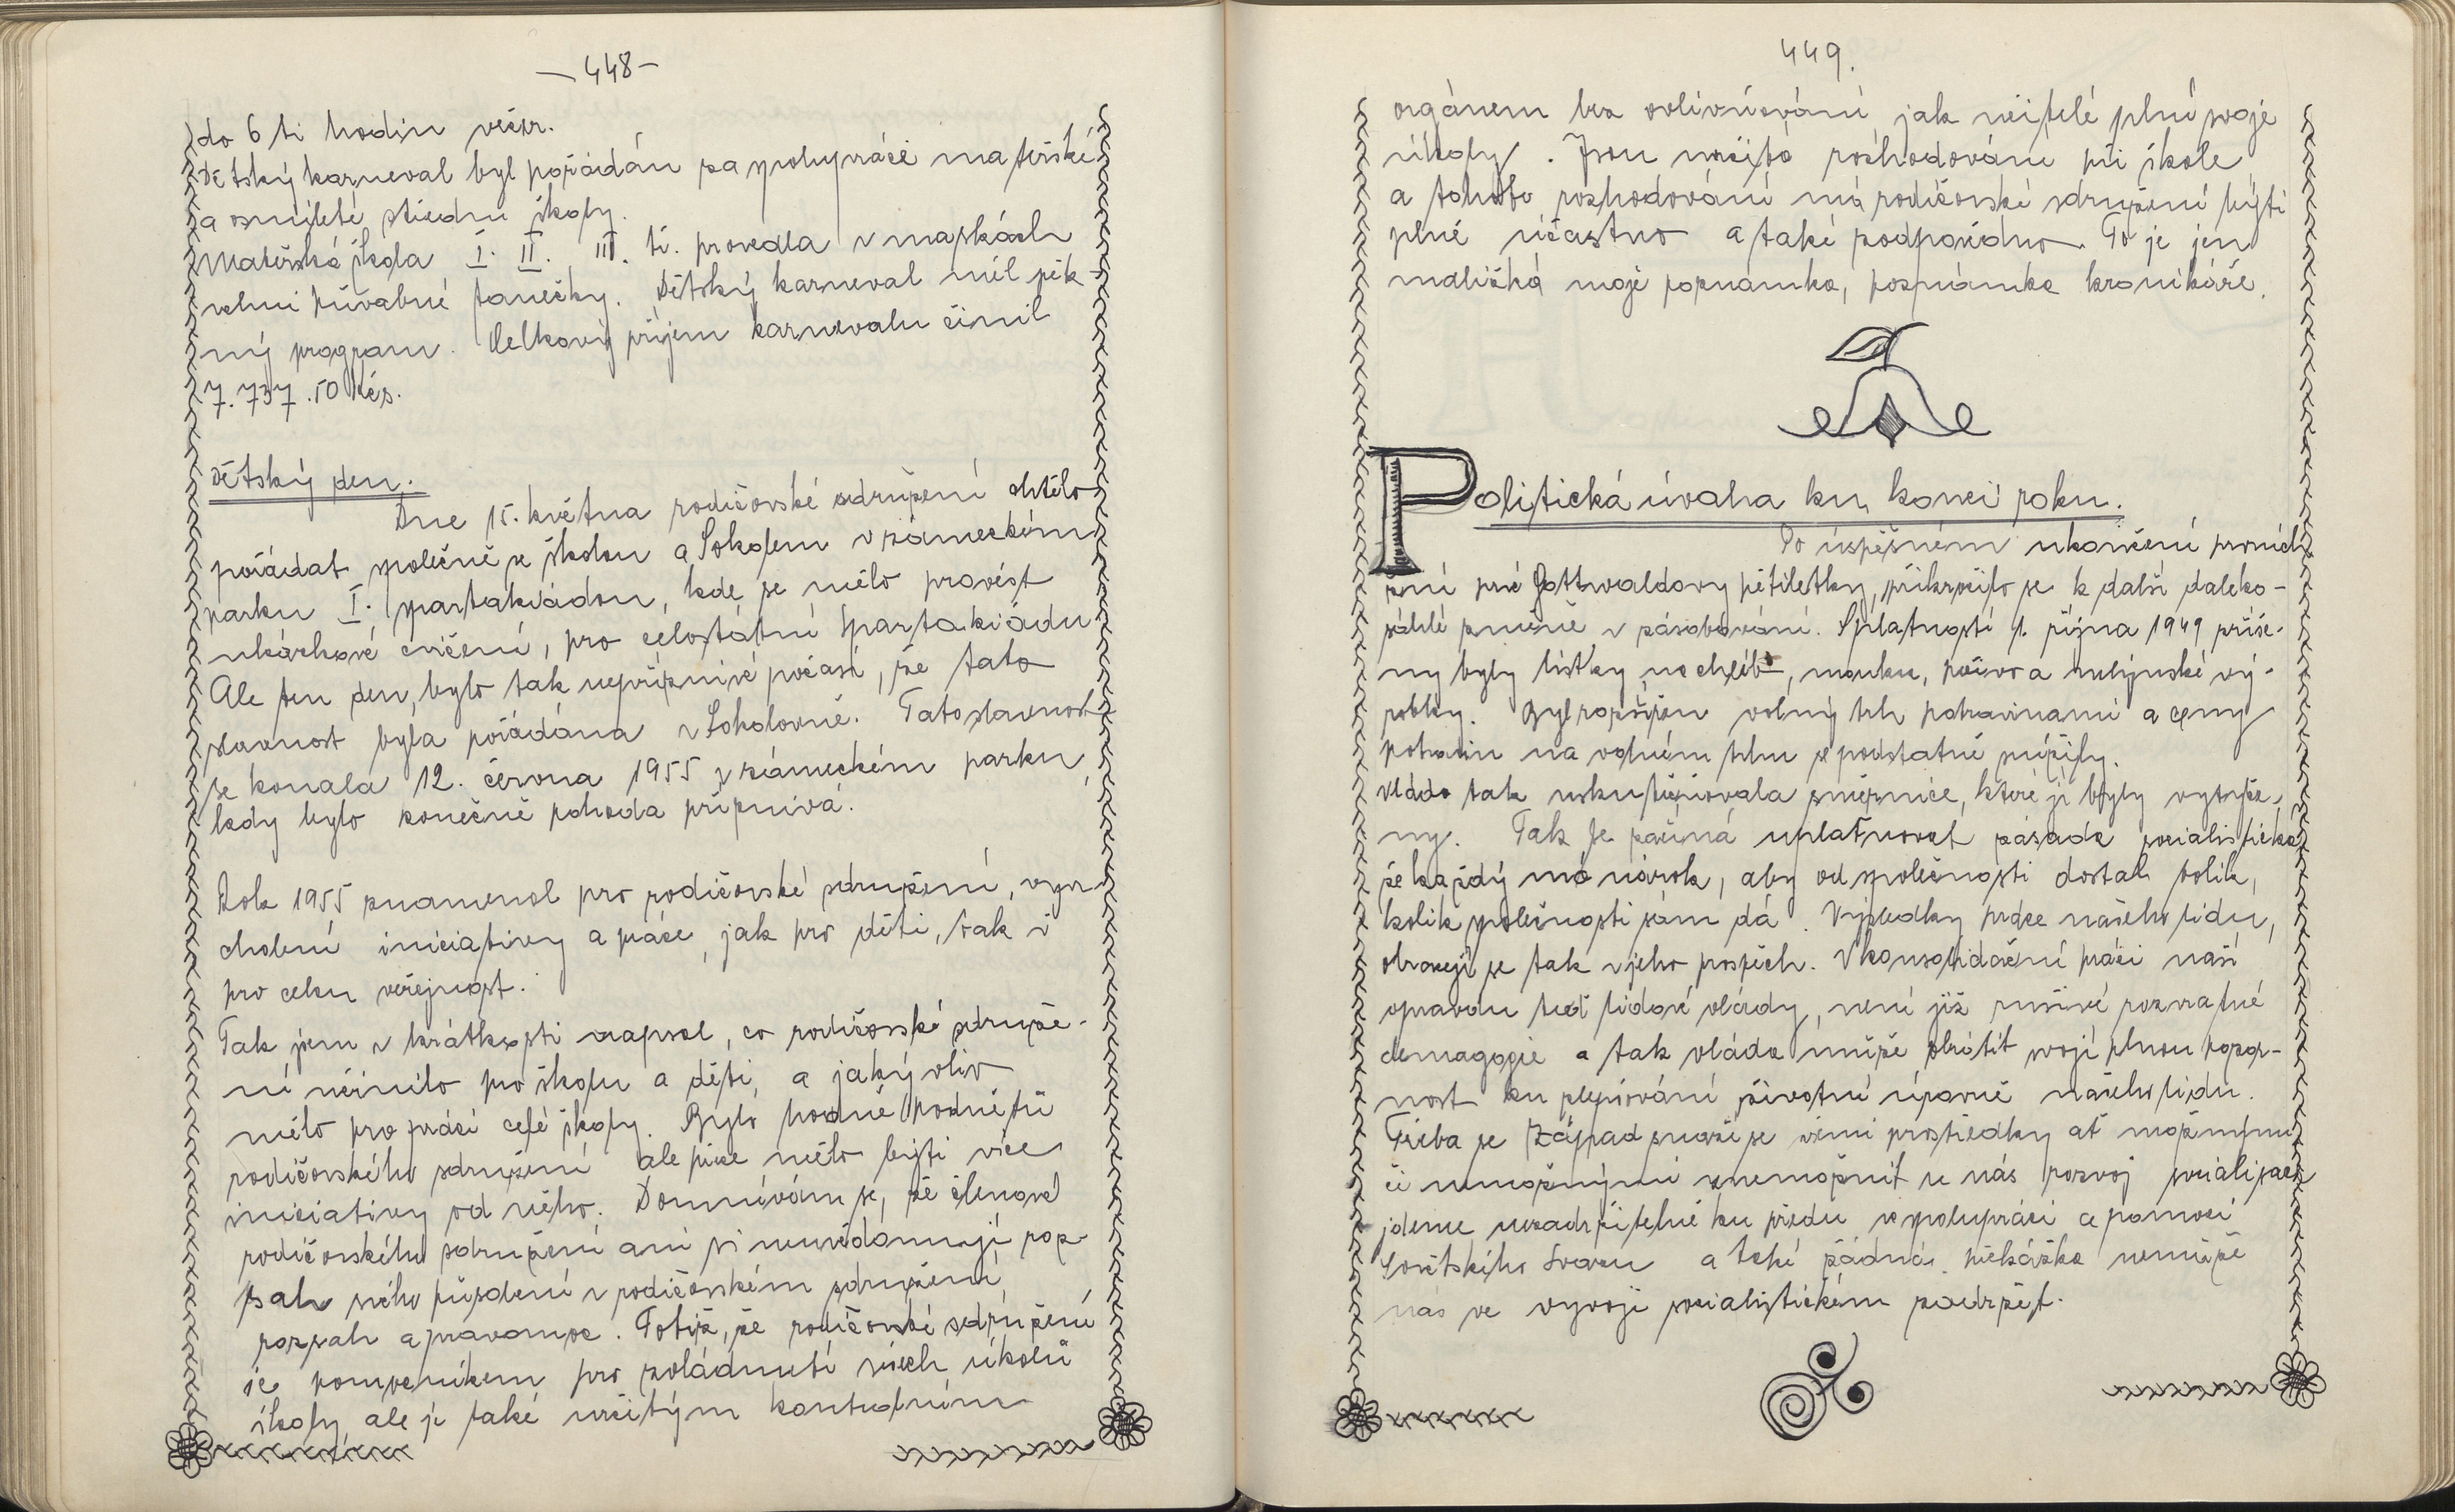 — 448 —
do 6 ti hodin večer.
Dětský karneval byl pořádán za spolupráce mateřské
a osmileté střední školy.
Mateřská škola I. II. III. tř. provedla v maskách
velmi půvabné tanečky. Dětský karneval měl pěk-
ný program. Celkový příjem karnevalu činil
7.737.50 Kčs.
Dětský den.
Dne 15. května rodičovské sdružení chtělo
pořádat společně se školou a Sokolem v zámeckém
parku I. spartakiádou, kde se mělo provést
ukázkové cvičení, pro celostátní spartakiádu
Ale ten den, bylo tak nepříznivé počasí, že tato
slavnost byla pořádána v Sokolovně. Tato slavnost
se konala 12. června 1955 v zámeckém parku,
kdy bylo konečně pohoda příznivá.
Rok 1955 znamenal pro rodičovské sdružení, vyvr-
cholení iniciativy a práce, jak pro děti, tak i
pro celou veřejnost.
Tak jsem v krátkosti napsal, co rodičovské sdruže-
ní učinilo pro školu a děti, a jaký vliv
mělo pro práci celé školy. Bylo hodně podnětů
rodičovského sdružení ale přece mělo býti více
iniciativy od něho. Domnívám se, že členové
rodičovského sdružení ani si neuvědomují roz-
sah svého působení v rodičovském sdružení,
rozsah a pravomoc. Totiž, že rodičovské sdružení
je pomocníkem pro zvládnutí všech úkolů
školy ale je také určitým kontrolním
449.
orgánem bez ovlivňování jak učitelé plní svoje
úkoly. Jsou určitá rozhodování při škole
a tohoto rozhodování má rodičovské sdružení býti
plně účastno a také zodpovědno. To je jen
maličká moje poznámka, poznámka kronikáře.
Politická úvaha ku konci roku.
Po úspěšném ukončení prvních
žní prvé Gottwaldovy pětiletky, přikročilo se k další daleko-
sáhlé změně v zásobování. Splatností 1. října 1949 zruše-
ny byly lístky na chléb, mouku, pečivo a mlýnské vý-
robky. Byl rozšířen volný trh potravinami a ceny
potravin na volném trhu se podstatně snížily.
Vláda tak uskutečňovala směrnice, které jí byly vytyče-
ny. Tak se začíná uplatňovat zásada socialistická
že každý má nárok, aby od společnosti dostal tolik,
kolik společnosti sám dá. Výsledky práce našeho lidu,
obracejí se tak v jeho prospěch. V konsolidační práci naší
opravdu teď lidové vlády, není již rušivé rozvratné
demagogie a tak vláda může obrátit svojí plnou pozor-
nost ku zlepšování životní úrovně našeho lidu.
Třeba se Západ snaží se všemi prostředky ať možnými
či nemožnými znemožnit u nás rozvoj socialisace
jdeme nezadržitelně ku předu ve spolupráci a pomoci
Sovětského svazu a také žádná překážka nemůže
nás ve vývoji socialistickém zadržet.